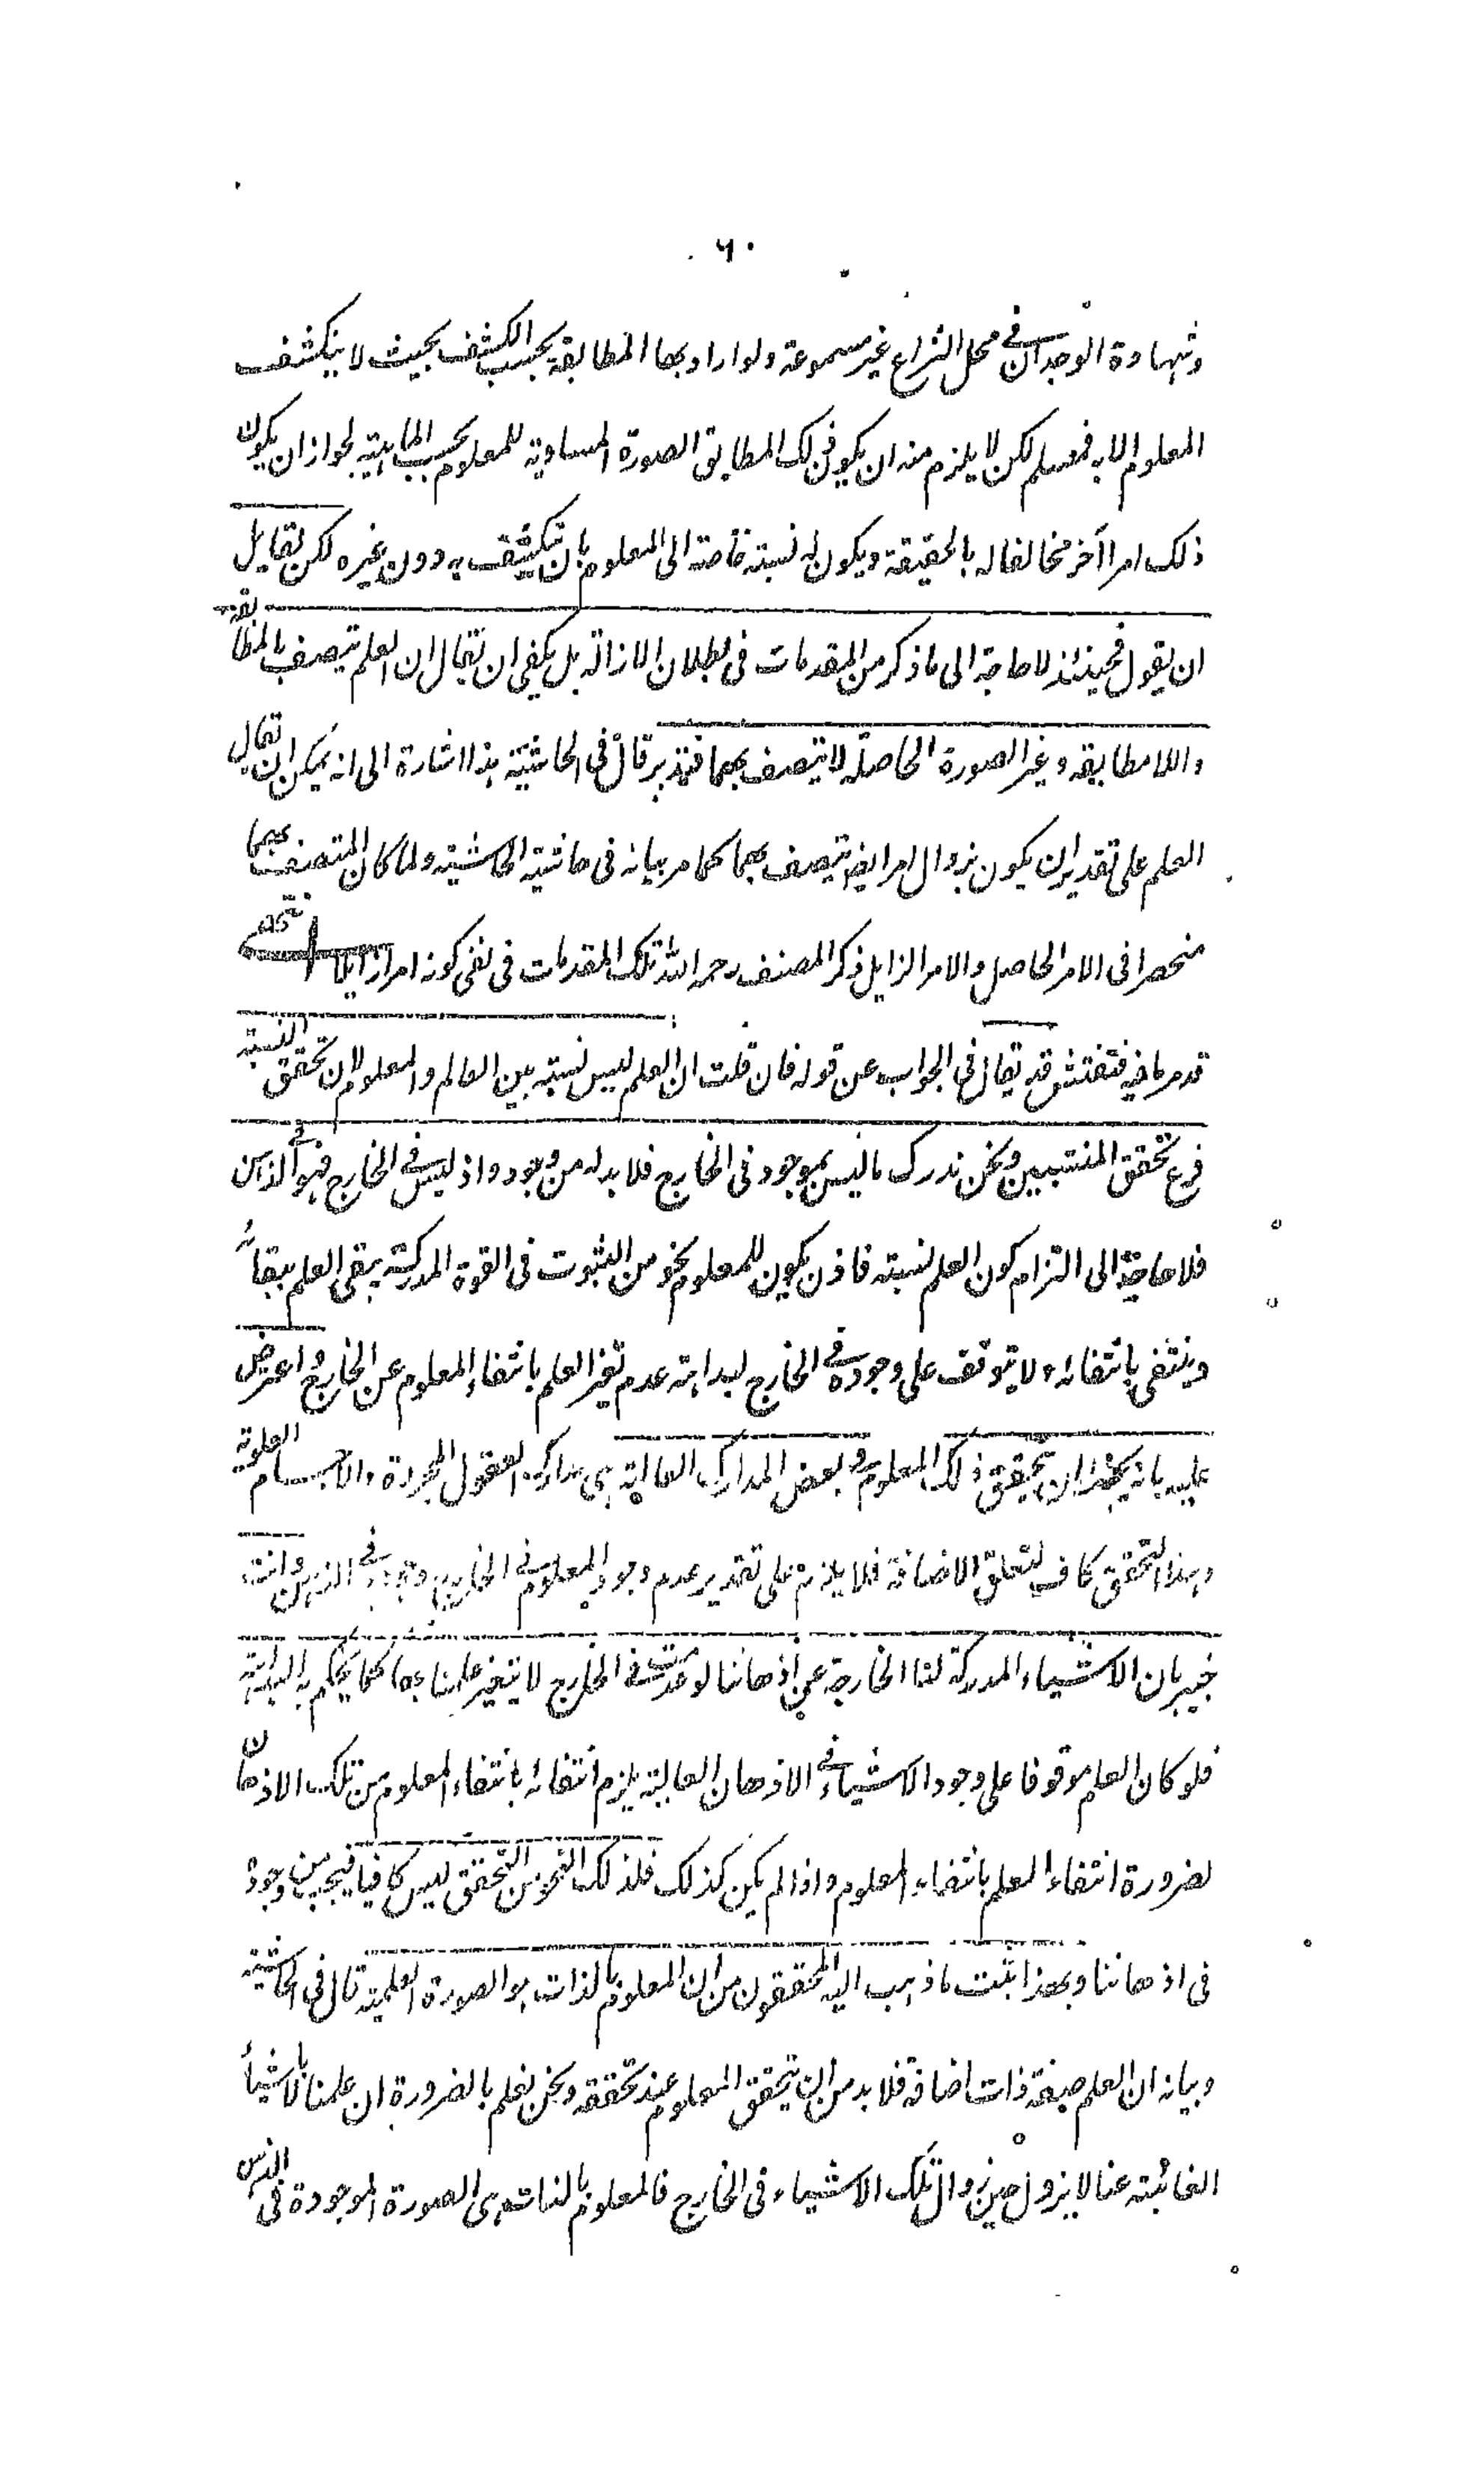 ٦٠
وشهادة الوجدان في محل النزاع غير مسموعة ولو اراد بها المطابقة بحسب الكشف بحيث لا ينكشف
المعلوم الا به فمسلم لكن لا يلزم منه ان يكون ذلك المطابق الصورة المساوية للمعلوم بحسب الماهية لجواز ان يكون
ذلك امرا آخر مخالفا له بالحقيقة ويكون له نسبة خاصة الى المعلوم بان ينكشف به دون غيره لكن لقايل
ان يقول فحينئذ لا حاجة الى ما ذكر من المقدمات في بطلان الازالة بل يكفي ان يقال ان العلم يتصف بالمطابقة
واللا مطابقة وغير الصورة الحاصلة لا يتصف بهما فتدبر قال في الحاشية هذا اشارة الى انه يمكن ان يقال
العلم على تقدير ان يكون بزوال امر ايضا يتصف بهما كما مر بيانه في حاشية الحاشية ولما كان المتصف بهما
منحصرا في الامر الحاصل والامر الزايل ذكر المصنف رحمه الله تلك المقدمات في نفي كونه امرا زايلا انتهى
قد مر ما فيه فتفتش قد يقال في الجواب عن قوله فان قلت ان العلم ليس نسبة بين العالم والمعلوم لان تحقق النسبة
فرع تحقق المنتسبين ونحن ندرك ما ليس بموجود في الخارج فلا بد له من وجود واذ ليس في الخارج فهو في الذهن
فلا حاجة الى التزام كون العلم نسبة فاذن يكون للمعلوم نحو من الثبوت في القوة المدركة يبقى العلم ببقائه
وينتفي بانتفائه ولا يتوقف على وجوده في الخارج لبداهة عدم تغير العلم بانتفاء المعلوم عن الخارج واعترض
عليه بانه يجوز ان يتحقق ذلك المعلوم في بعض المدارك العالية هي مدارك العقول المجردة والاجسام العلوية
وهذا التحقق كاف لتعلق الاضافة فلا يلزم على تقدير عدم وجود المعلوم في الخارج وجوده في الذهن وانت
خبير بان الاشياء المدركة لنا الخارجة عن اذهاننا لو عدمت في الخارج لا يتغير علمنا بها كما يحكم به البداهة
فلو كان العلم موقوفا على وجود الاشياء في الاذهان العالية يلزم انتفائه بانتفاء المعلوم من تلك الاذهان
لضرورة انتفاء العلم بانتفاء المعلوم واذا لم يكن كذلك فلذلك النحو من التحقق ليس كافيا فيجب من وجوده
في اذهاننا وبهذا يثبت ما ذهب اليه المحققون من ان المعلوم بالذات هو الصورة العلمية قال في الحاشية
وبيانه ان العلم صفة ذات اضافة فلا بد من ان يتحقق المعلوم عند تحققه ونحن نعلم بالضرورة ان علمنا بالاشياء
الغائبة عنا لا يزول حين زوال تلك الاشياء في الخارج فالمعلوم بالذات هي الصورة الموجودة في الذهن